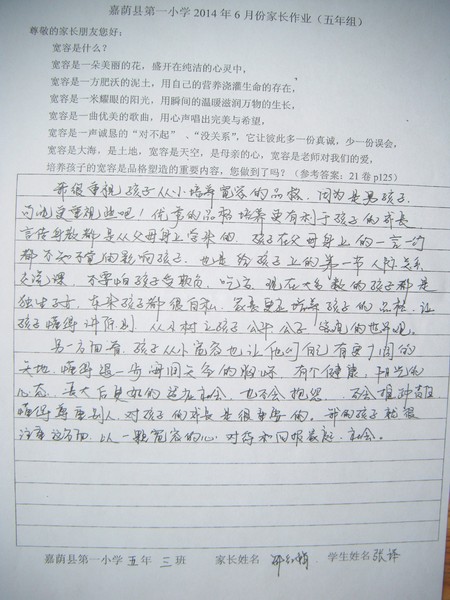 嘉荫县第一小学2014年6月份家长作业（五年组）
尊敬的家长朋友您好：
宽容是什么？
宽容是一朵美丽的花，盛开在纯洁的心灵中，
宽容是一方肥沃的泥土，用自己的营养浇灌生命的存在，
宽容是一米耀眼的阳光，用瞬间的温暖滋润万物的生长，
宽容是一曲优美的歌曲，用心声唱出完美与希望，
宽容是一声诚恳的“对不起”、“没关系”，它让彼此多一份真诚，少一份误会，
宽容是大海，是土地，宽容是天空，是母亲的心，宽容是老师对我们的爱，
培养孩子的宽容是品格塑造的重要内容，您做到了吗？（参考答案：21卷p125）
我很重视孩子从小培养宽容的品格，因为是男孩子，
可能更重视些吧！优秀的品格培养更有利于孩子的成长
言传身教都是从父母身上学来的，孩子在父母身上的一言一行
都不知不觉的影响孩子，也是给孩子上的第一节人际关系
交流课，不要怕孩子受欺负，吃亏，现在大多数的孩子都是
独生子女，在家孩子都很自私，家长更应培养孩子的品格，让
孩子懂得讲原则，从小树立孩子公平公正
另一方面看，孩子从小宽容也让他们自己有更广阔的
天地，懂得退一步海阔天空的胸怀，有个健康，阳光的
心态，长大后更好的
懂得尊重别人，对孩子的成长是很重要的，我的孩子就很
注重这方面，以一颗宽容的心对待和回报家庭、社会。
嘉荫县第一小学 五 年 三 班 家长姓名 学生姓名 张译